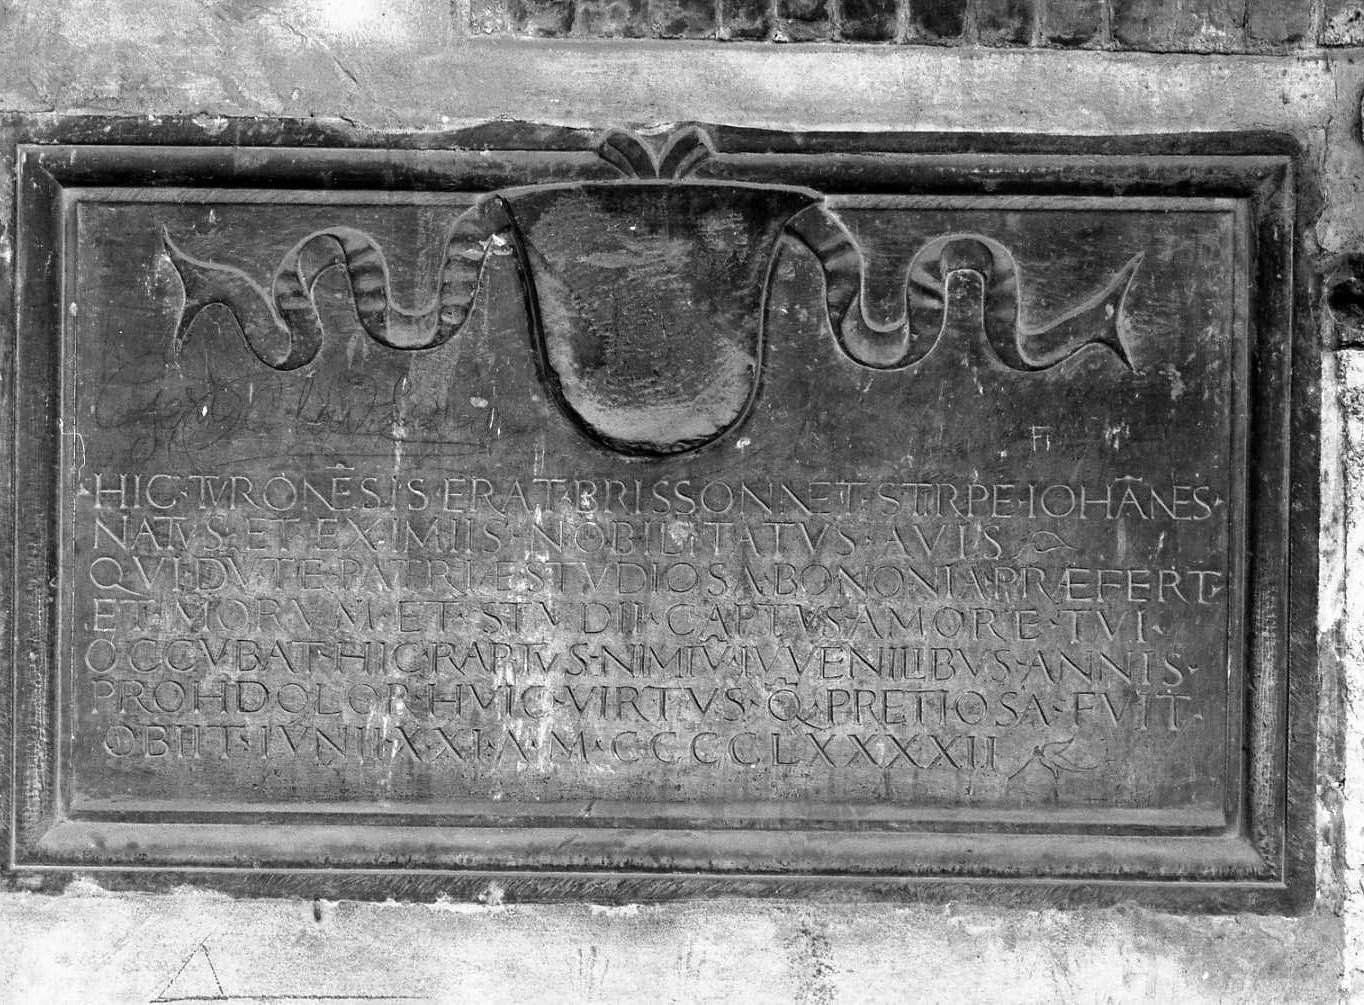 HIC·TVRONESIS·ERAT·BRISSONNET·STIRPE·IOHANES·
NATVS·ET EXIMIIS·NOBILITATVS·AVIS
QVI·DVTE·PATRIÆ STVDIOSA BONONIA PRÆFERT·
ET·MORVM·ET·STVDII·CAPTVS AMORE·TVI·
OCCVBAT·HIC·RAPTVS·NIMIVM IVVENILIBVS·ANNIS·
PROH·DOLOR·HVIC·VIRTVS·Q·PRETIOSA·FVIT·
OBIIT·IVNII·XXI·A·M·CCCCLXXXXII